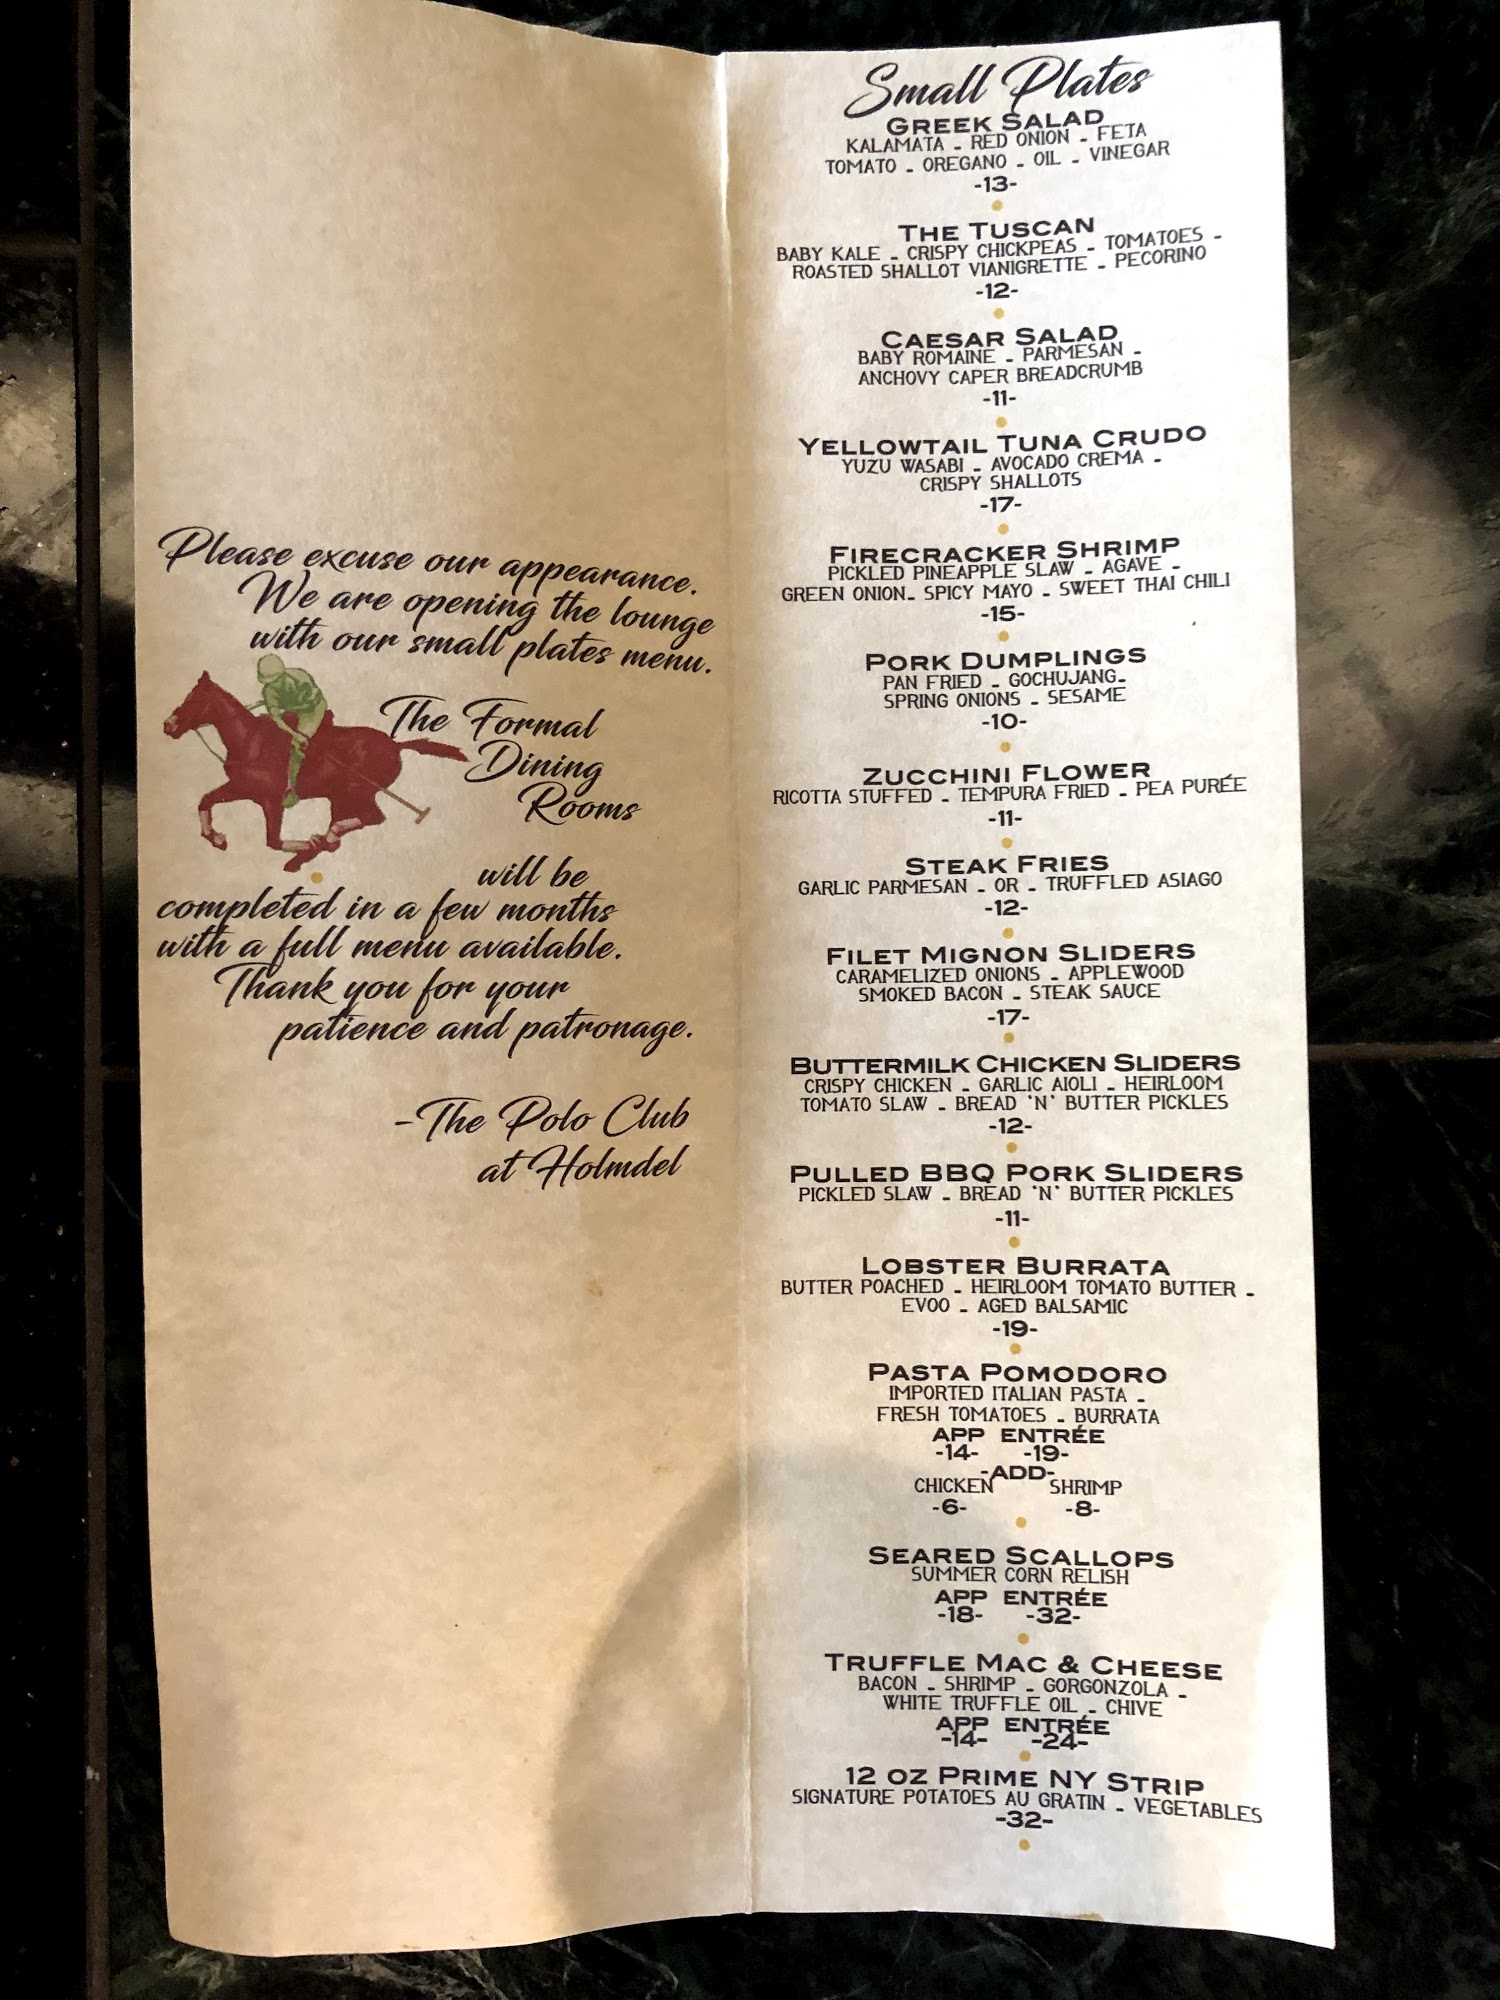 Please excuse our appearance.
We are opening the lounge
with our small plates menu.
The Formal
Dining
Rooms
will be
completed in a few months
with a full menu available.
Thank you for your
patience and patronage.
-The Polo Club
at Holmdel
Small Plates
GREEK SALAD
KALAMATA - RED ONION - FETA
TOMATO - OREGANO - OIL - VINEGAR
-13-
THE TUSCAN
BABY KALE - CRISPY CHICKPEAS - TOMATOES -
ROASTED SHALLOT VIANIGRETTE - PECORINO
-12-
CAESAR SALAD
BABY ROMAINE - PARMESAN -
ANCHOVY CAPER BREADCRUMB
-11-
YELLOWTAIL TUNA CRUDO
YUZU WASABI - AVOCADO CREMA -
CRISPY SHALLOTS
-17-
FIRECRACKER SHRIMP
PICKLED PINEAPPLE SLAW - AGAVE -
GREEN ONION- SPICY MAYO - SWEET THAI CHILI
-15-
PORK DUMPLINGS
PAN FRIED - GOCHUJANG-
SPRING ONIONS - SESAME
-10-
ZUCCHINI FLOWER
RICOTTA STUFFED - TEMPURA FRIED - PEA PURÉE
-11-
STEAK FRIES
GARLIC PARMESAN - OR - TRUFFLED ASIAGO
-12-
FILET MIGNON SLIDERS
CARAMELIZED ONIONS - APPLEWOOD
SMOKED BACON - STEAK SAUCE
-17-
BUTTERMILK CHICKEN SLIDERS
CRISPY CHICKEN - GARLIC AIOLI - HEIRLOOM
TOMATO SLAW - BREAD 'N' BUTTER PICKLES
-12-
PULLED BBQ PORK SLIDERS
PICKLED SLAW - BREAD 'N' BUTTER PICKLES
-11-
LOBSTER BURRATA
BUTTER POACHED - HEIRLOOM TOMATO BUTTER -
EVOO - AGED BALSAMIC
-19-
PASTA POMODORO
IMPORTED ITALIAN PASTA -
FRESH TOMATOES - BURRATA
APP ENTRÉE
-14- -19-
-ADD-
CHICKEN SHRIMP
-6- -8-
SEARED SCALLOPS
SUMMER CORN RELISH
APP ENTRÉE
-18- -32-
TRUFFLE MAC & CHEESE
BACON - SHRIMP - GORGONZOLA -
WHITE TRUFFLE OIL - CHIVE
APP ENTRÉE
-14- -24-
12 OZ PRIME NY STRIP
SIGNATURE POTATOES AU GRATIN - VEGETABLES
-32-